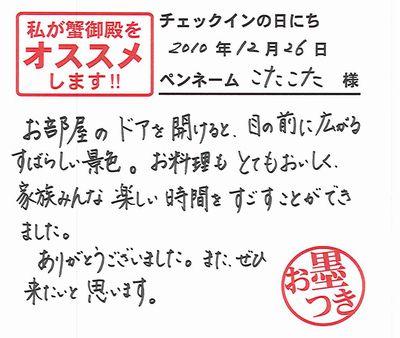 私が蟹御殿を
オススメ
します!!
チェックインの日にち
2010年12月26日
ペンネーム こたこた 様
お部屋のドアを開けると、目の前に広がる
すばらしい景色。お料理もとてもおいしく、
家族みんな楽しい時間をすごすことができ
ました。
ありがとうございました。また、ぜひ
来たいと思います。
お墨
つき